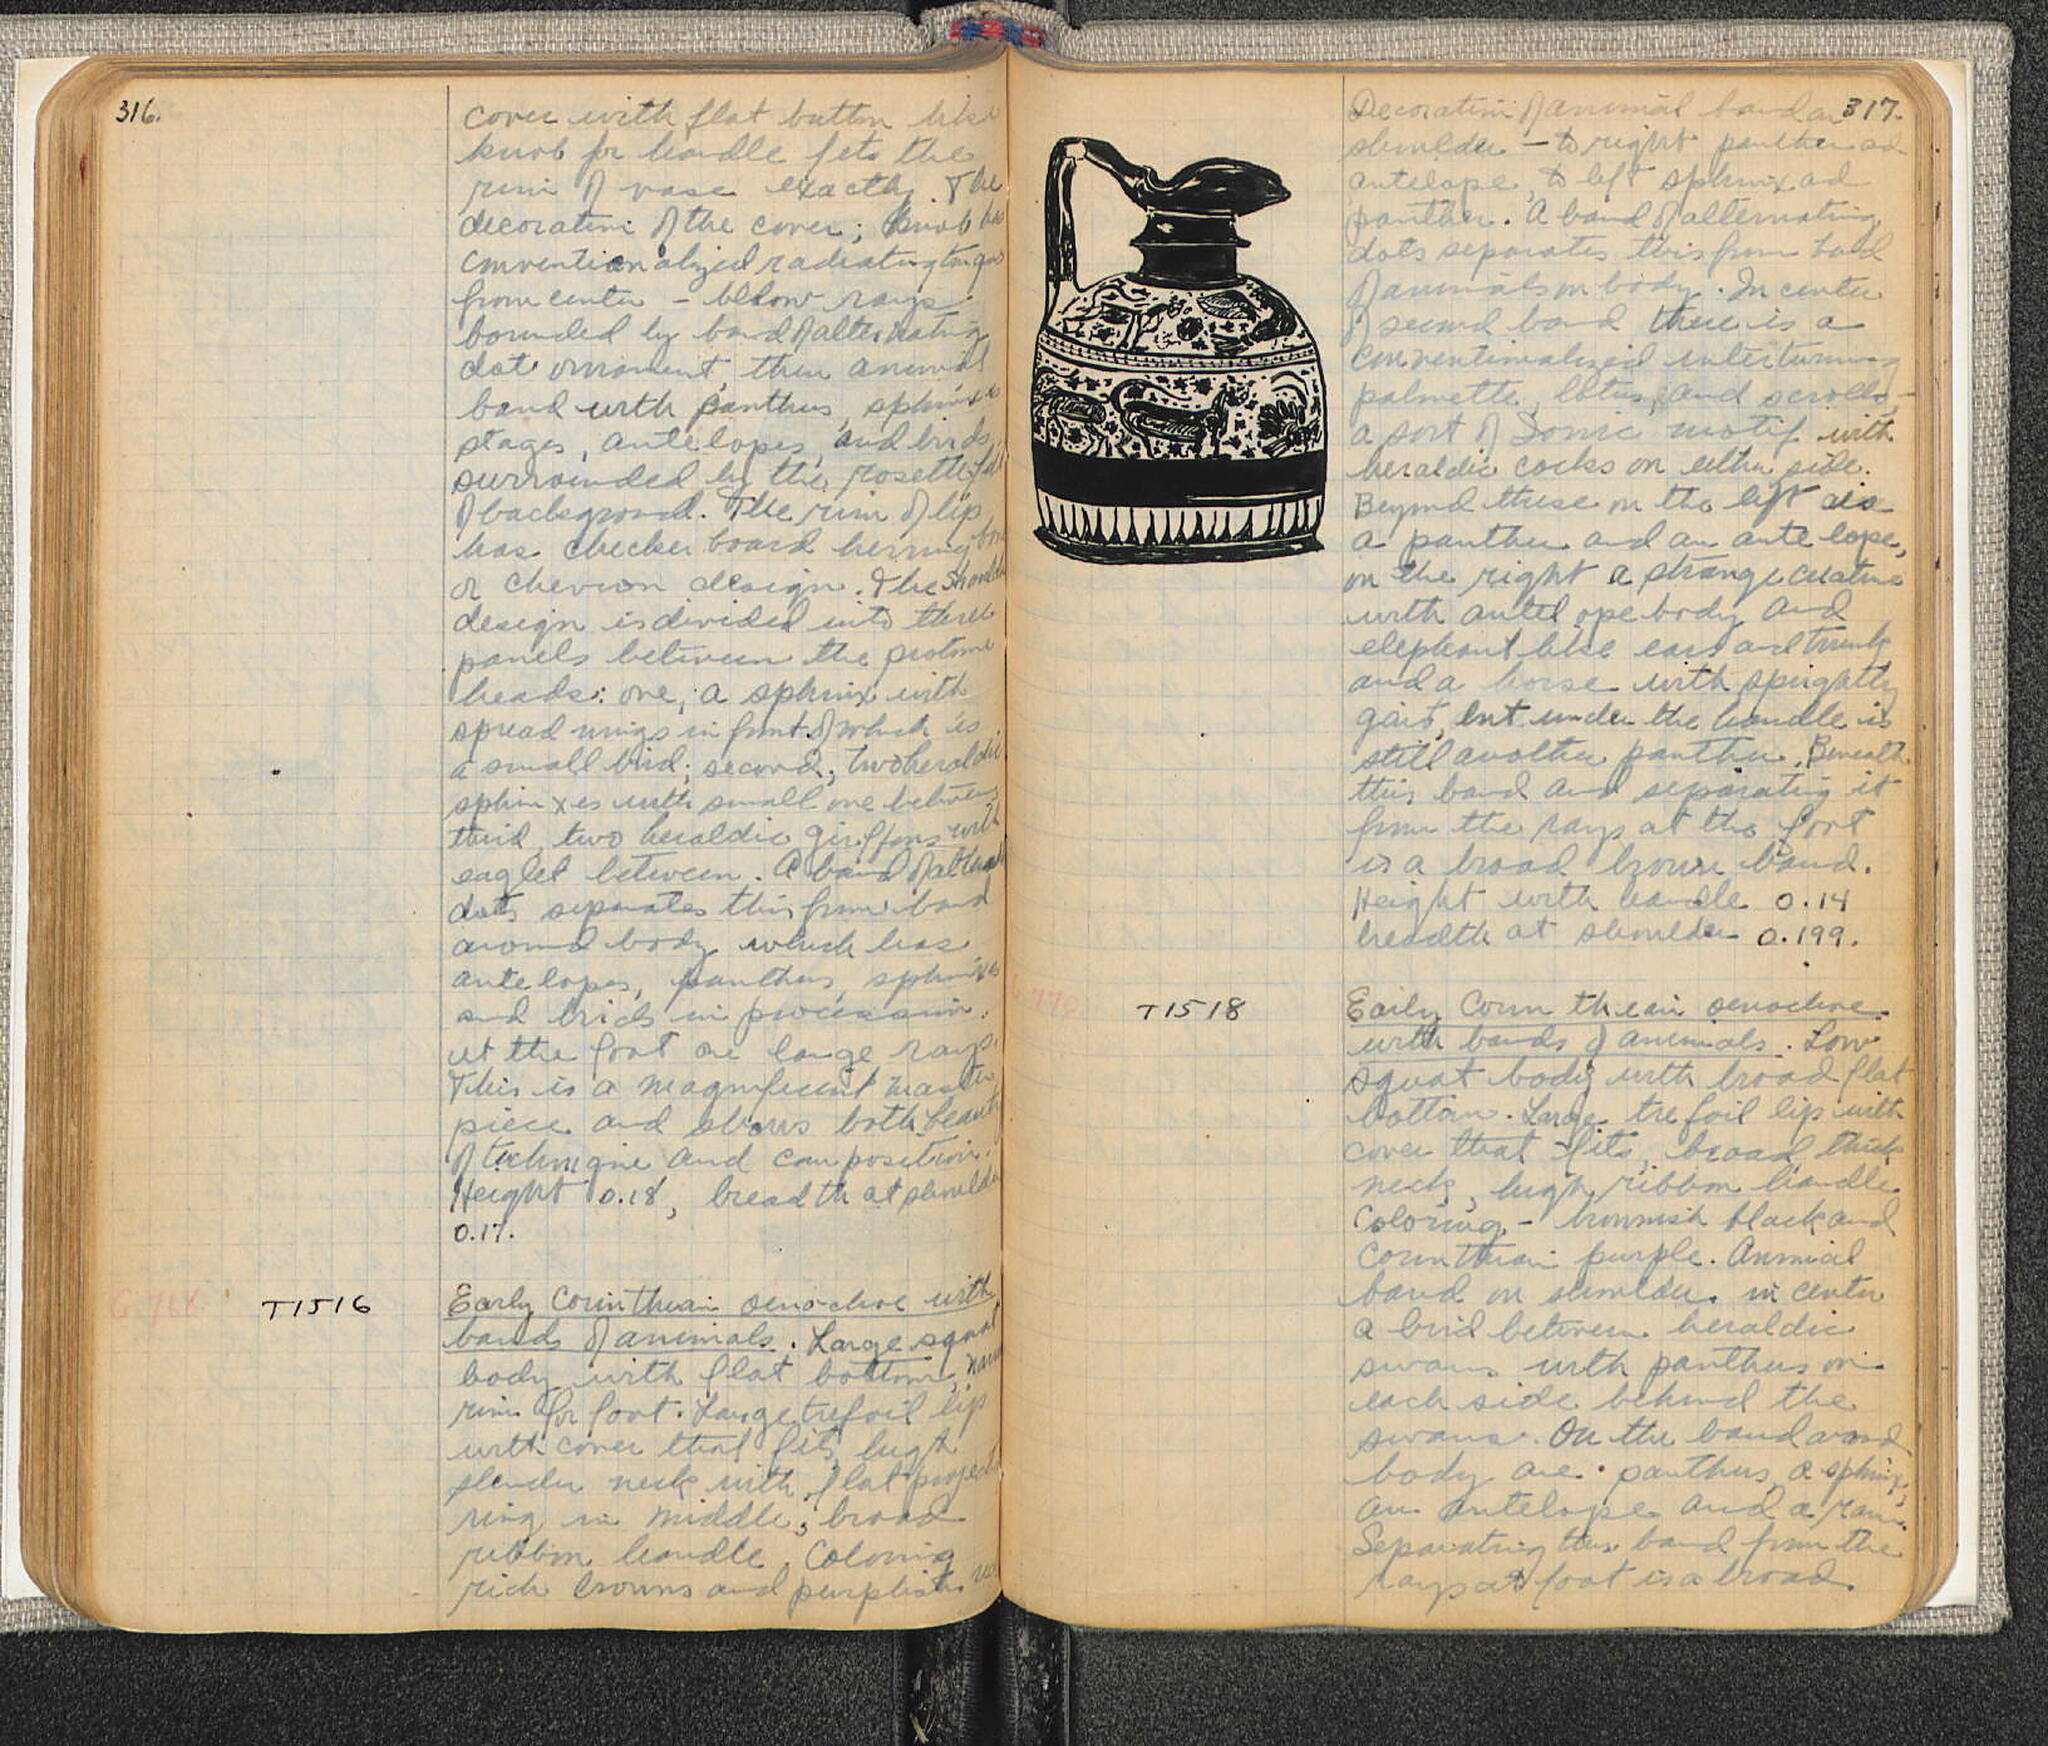 316.
cover with flat button like
knob for handle fits the
rim of vase exactly. The
decoration of the cover; knob has
conventionalized radiating tongues
from center - below rays
bounded by band of alternating
dot ornament, then animal
band with panthers, sphinxes
stages, antelopes, and birds,
surrounded by the rosette
of background. The rim of lip
has checker board herring bone
or chevron design. The shoulder
design is divided into three
panels between the protome
heads: one, a sphinx with
spread wings in front of which is
a small bird; second, two heraldic
sphinxes with small one between
third, two heraldic griffons with
eaglet between. A band of
dots separates this from band
around body which has
antelopes, panthers, sphinxes
and birds in procession.
at the foot are large rays.
This is a magnificent master
piece and shows both beauty
of technique and composition.
Height 0.18, breadth at shoulder
0.17.
T1516
Early Corinthian oenochoe with
bands of animals. Large squat
body with flat bottom,
rim for foot. Large trefoil lip
with cover that fits, high
slender neck with flat
ring in middle, broad
ribbon handle. Coloring
rich browns and purplish red
317.
Decoration of animal band on
shoulder - to right panther and
antelope, to left sphinx and
panther. A band of alternating
dots separates this from band
of animals on body. In center
of second band there is a
conventionalized intertwining
palmette, lotus, and scrolls -
a sort of Ionic motif with
heraldic cocks on either side.
Beyond these on the left are
a panther and an antelope,
on the right a strange creature
with antelope body and
elephant like ears and trunk
and a horse with sprightly
gait, but under the handle is
still another panther. Beneath
this band and separating it
from the rays at the foot
is a broad brown band.
Height with handle 0.14
breadth at shoulder 0.199.
T1518
Early Corinthian oenochoe
with bands of animals. Low
squat body with broad flat
bottom. Large trefoil lip with
cover that fits, broad thick
neck, high ribbon handle.
Coloring - brownish black and
Corinthian purple. Animal
band on shoulder in center
a bird between heraldic
swans with panthers on
each side behind the
swans. On the band around
body are panthers, a sphinx,
an antelope and a ram.
Separating this band from the
rays at foot is a broad